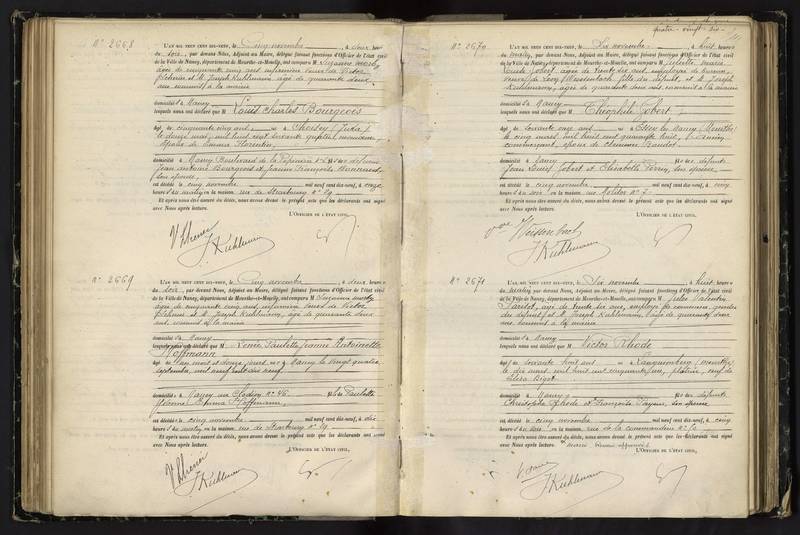 N° 2668
L'AN MIL NEUF CENT DIX-NEUF, le Cinq novembre, à deux heures
du soir, par devant Nous, Adjoint au Maire, délégué faisant fonctions d'Officier de l'état civil
de la Ville de Nancy, département de Meurthe-et-Moselle, ont comparu M Suzanne
agée de cinquante cinq ans infirmière veuve de Victor
et M. Joseph Kuhlmann, agé de quarante deux
ans commis à la mairie
domiciliés à Nancy
lesquels nous ont déclaré que M Louis Charles Bourgeois
âgé de cinquante cinq ans né à Choisey (Jura)
le douze mars mil huit cent soixante quatre,
époux de Emma Florentin
domicilié à Nancy Boulevard de la Pépinière fils des défunts
Jean Antoine Bourgeois et Jeanne Françoise
son épouse
est décédé le cinq novembre mil neuf cent dix-neuf, à onze
heures du matin en la maison rue de Strasbourg n° 29
Et après nous être assuré du décès, nous avons dressé le présent acte que les déclarants ont signé
avec Nous après lecture.
L'OFFICIER DE L'ÉTAT CIVIL,
J. Kuhlmann
N° 2669
L'AN MIL NEUF CENT DIX-NEUF, le Cinq novembre, à deux heures
du soir, par devant Nous, Adjoint au Maire, délégué faisant fonctions d'Officier de l'état civil
de la Ville de Nancy, département de Meurthe-et-Moselle, ont comparu M Suzanne
agée de cinquante cinq ans, infirmière veuve de Victor
et M. Joseph Kuhlmann, agé de quarante deux
ans, commis à la mairie
domiciliés à Nancy
lesquels nous ont déclaré que M Paulette Jeanne Antoinette
Hoffmann
âgé d'un mois et douze jours, né à Nancy le vingt quatre
septembre, mil neuf cent dix neuf
domiciliée à Nancy rue n° 46 fille de Paulette
Jeanne Emma Hoffmann,
est décédée le cinq novembre mil neuf cent dix-neuf, à dix
heures du matin, en la maison rue de Strasbourg n° 29
Et après nous être assuré du décès, nous avons dressé le présent acte que les déclarants ont signé
avec Nous après lecture.
L'OFFICIER DE L'ÉTAT CIVIL,
J. Kuhlmann
quatre-vingt-dix
N° 2670
L'AN MIL NEUF CENT DIX-NEUF, le Six novembre, à huit heures
du matin, par devant Nous, Adjoint au Maire, délégué faisant fonctions d'Officier de l'état civil
de la Ville de Nancy, département de Meurthe-et-Moselle, ont comparu M Juliette Marie
Jobert, agée de trente six ans, employée de bureau,
fille du défunt, et M. Joseph
Kuhlmann, agé de quarante deux ans, commis à la mairie
domiciliés à Nancy
lesquels nous ont déclaré que M Théophile Jobert
âgé de soixante onze ans né à Essey les Nancy (Meurthe)
le cinq mars, mil huit cent quarante huit,
commerçant, époux de
domicilié à Nancy fils des défunts
Jean Louis Jobert et Elisabeth son épouse
est décédé le cinq novembre mil neuf cent dix-neuf, à onze
heures du soir en la maison rue Molitor n° 2
Et après nous être assuré du décès, nous avons dressé le présent acte que les déclarants ont signé
avec Nous après lecture.
L'OFFICIER DE L'ÉTAT CIVIL,
J. Kuhlmann
N° 2671
L'AN MIL NEUF CENT DIX-NEUF, le Six novembre, à huit heures
du matin, par devant Nous, Adjoint au Maire, délégué faisant fonctions d'Officier de l'état civil
de la Ville de Nancy, département de Meurthe-et-Moselle, ont comparu M Jules Valentin
agé de trente six ans, employé de commerce, gendre
du défunt et M. Joseph Kuhlmann, agé de quarante deux
ans, commis à la mairie
domiciliés à Nancy
lesquels nous ont déclaré que M Victor Rhode
âgé de soixante huit ans né à
le dix mars, mil huit cent cinquante un, plâtrier, veuf de
domicilié à Nancy fils des défunts
Christophe Rhode et Françoise son épouse
est décédé le cinq novembre mil neuf cent dix-neuf, à cinq
heures du soir en la maison rue de la commanderie n°
Et après nous être assuré du décès, nous avons dressé le présent acte que les déclarants ont signé
avec Nous après lecture.
L'OFFICIER DE L'ÉTAT CIVIL,
J. Kuhlmann